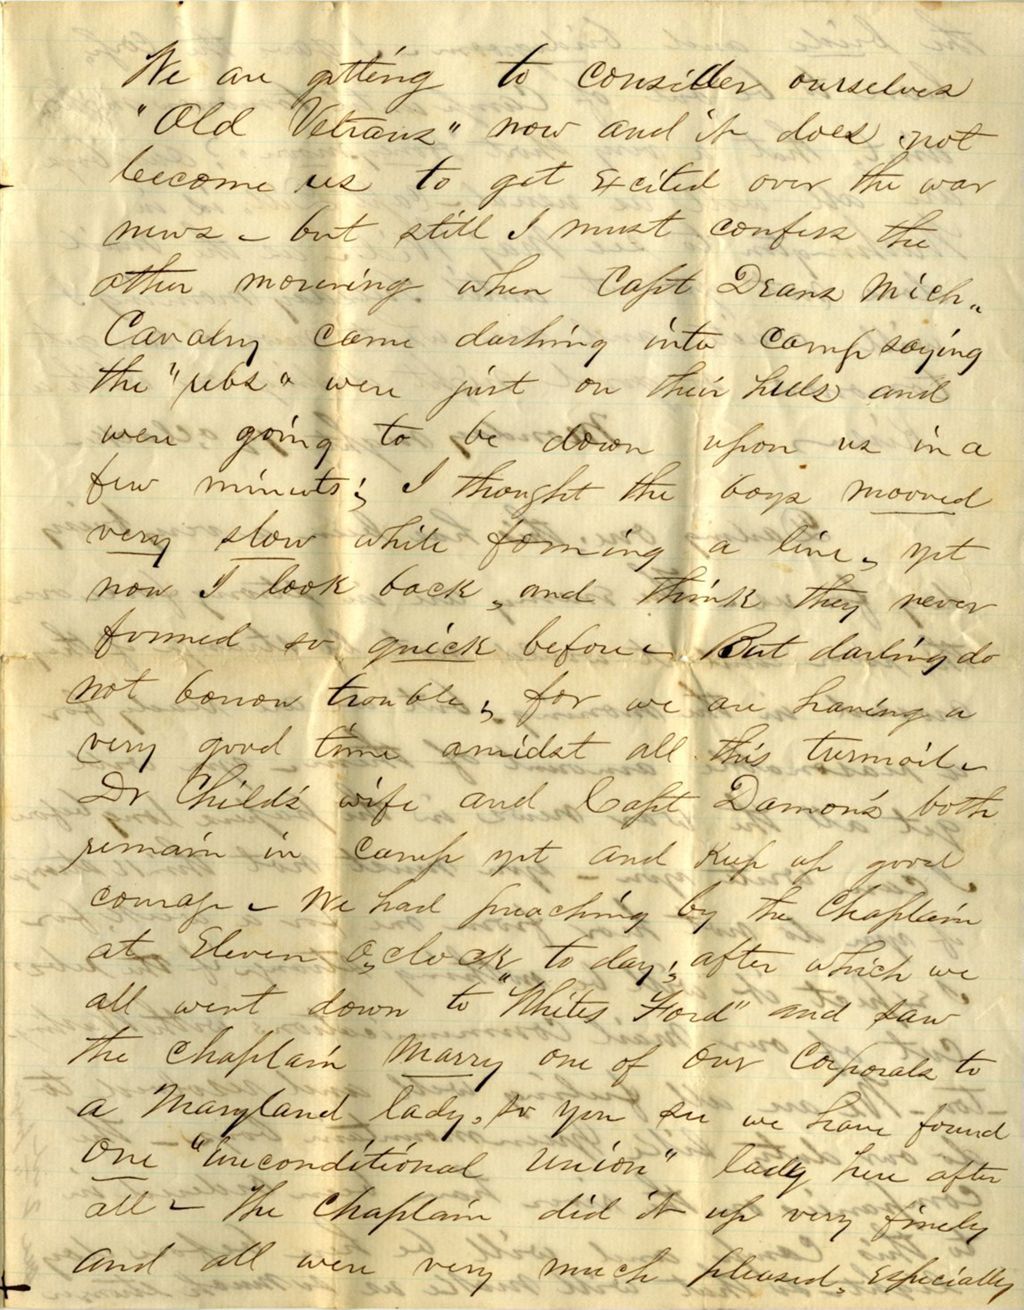 We are getting to consider ourselves
"Old Vetrans" now and it does not
become us to get excited over the war
news – but still I must confess the
other morning when Capt Deans Mich.
Cavalry came dashing into camp saying
the "rebs" were just on their heels and
were going to be down upon us in a
few minuts; I thought the boys mooved
very slow while forming a line, yet
now I look back, and think they never
formed so quick before – But darling do
not borrow trouble, for we are having a
very good time amidst all this turmoil –
Dr Child's wife and Capt Damon's both
remain in camp yet and keep up good
courage – We had preaching by the Chaplain
at Eleven O,clock to day, after which we
all went down to "Whites Ford" and saw
the Chaplain marry one of our Corporals to
a Maryland lady, so you see we have found
one "unconditional union" lady here after
all – The Chaplain did it up very finely
and all were very much pleased, especially